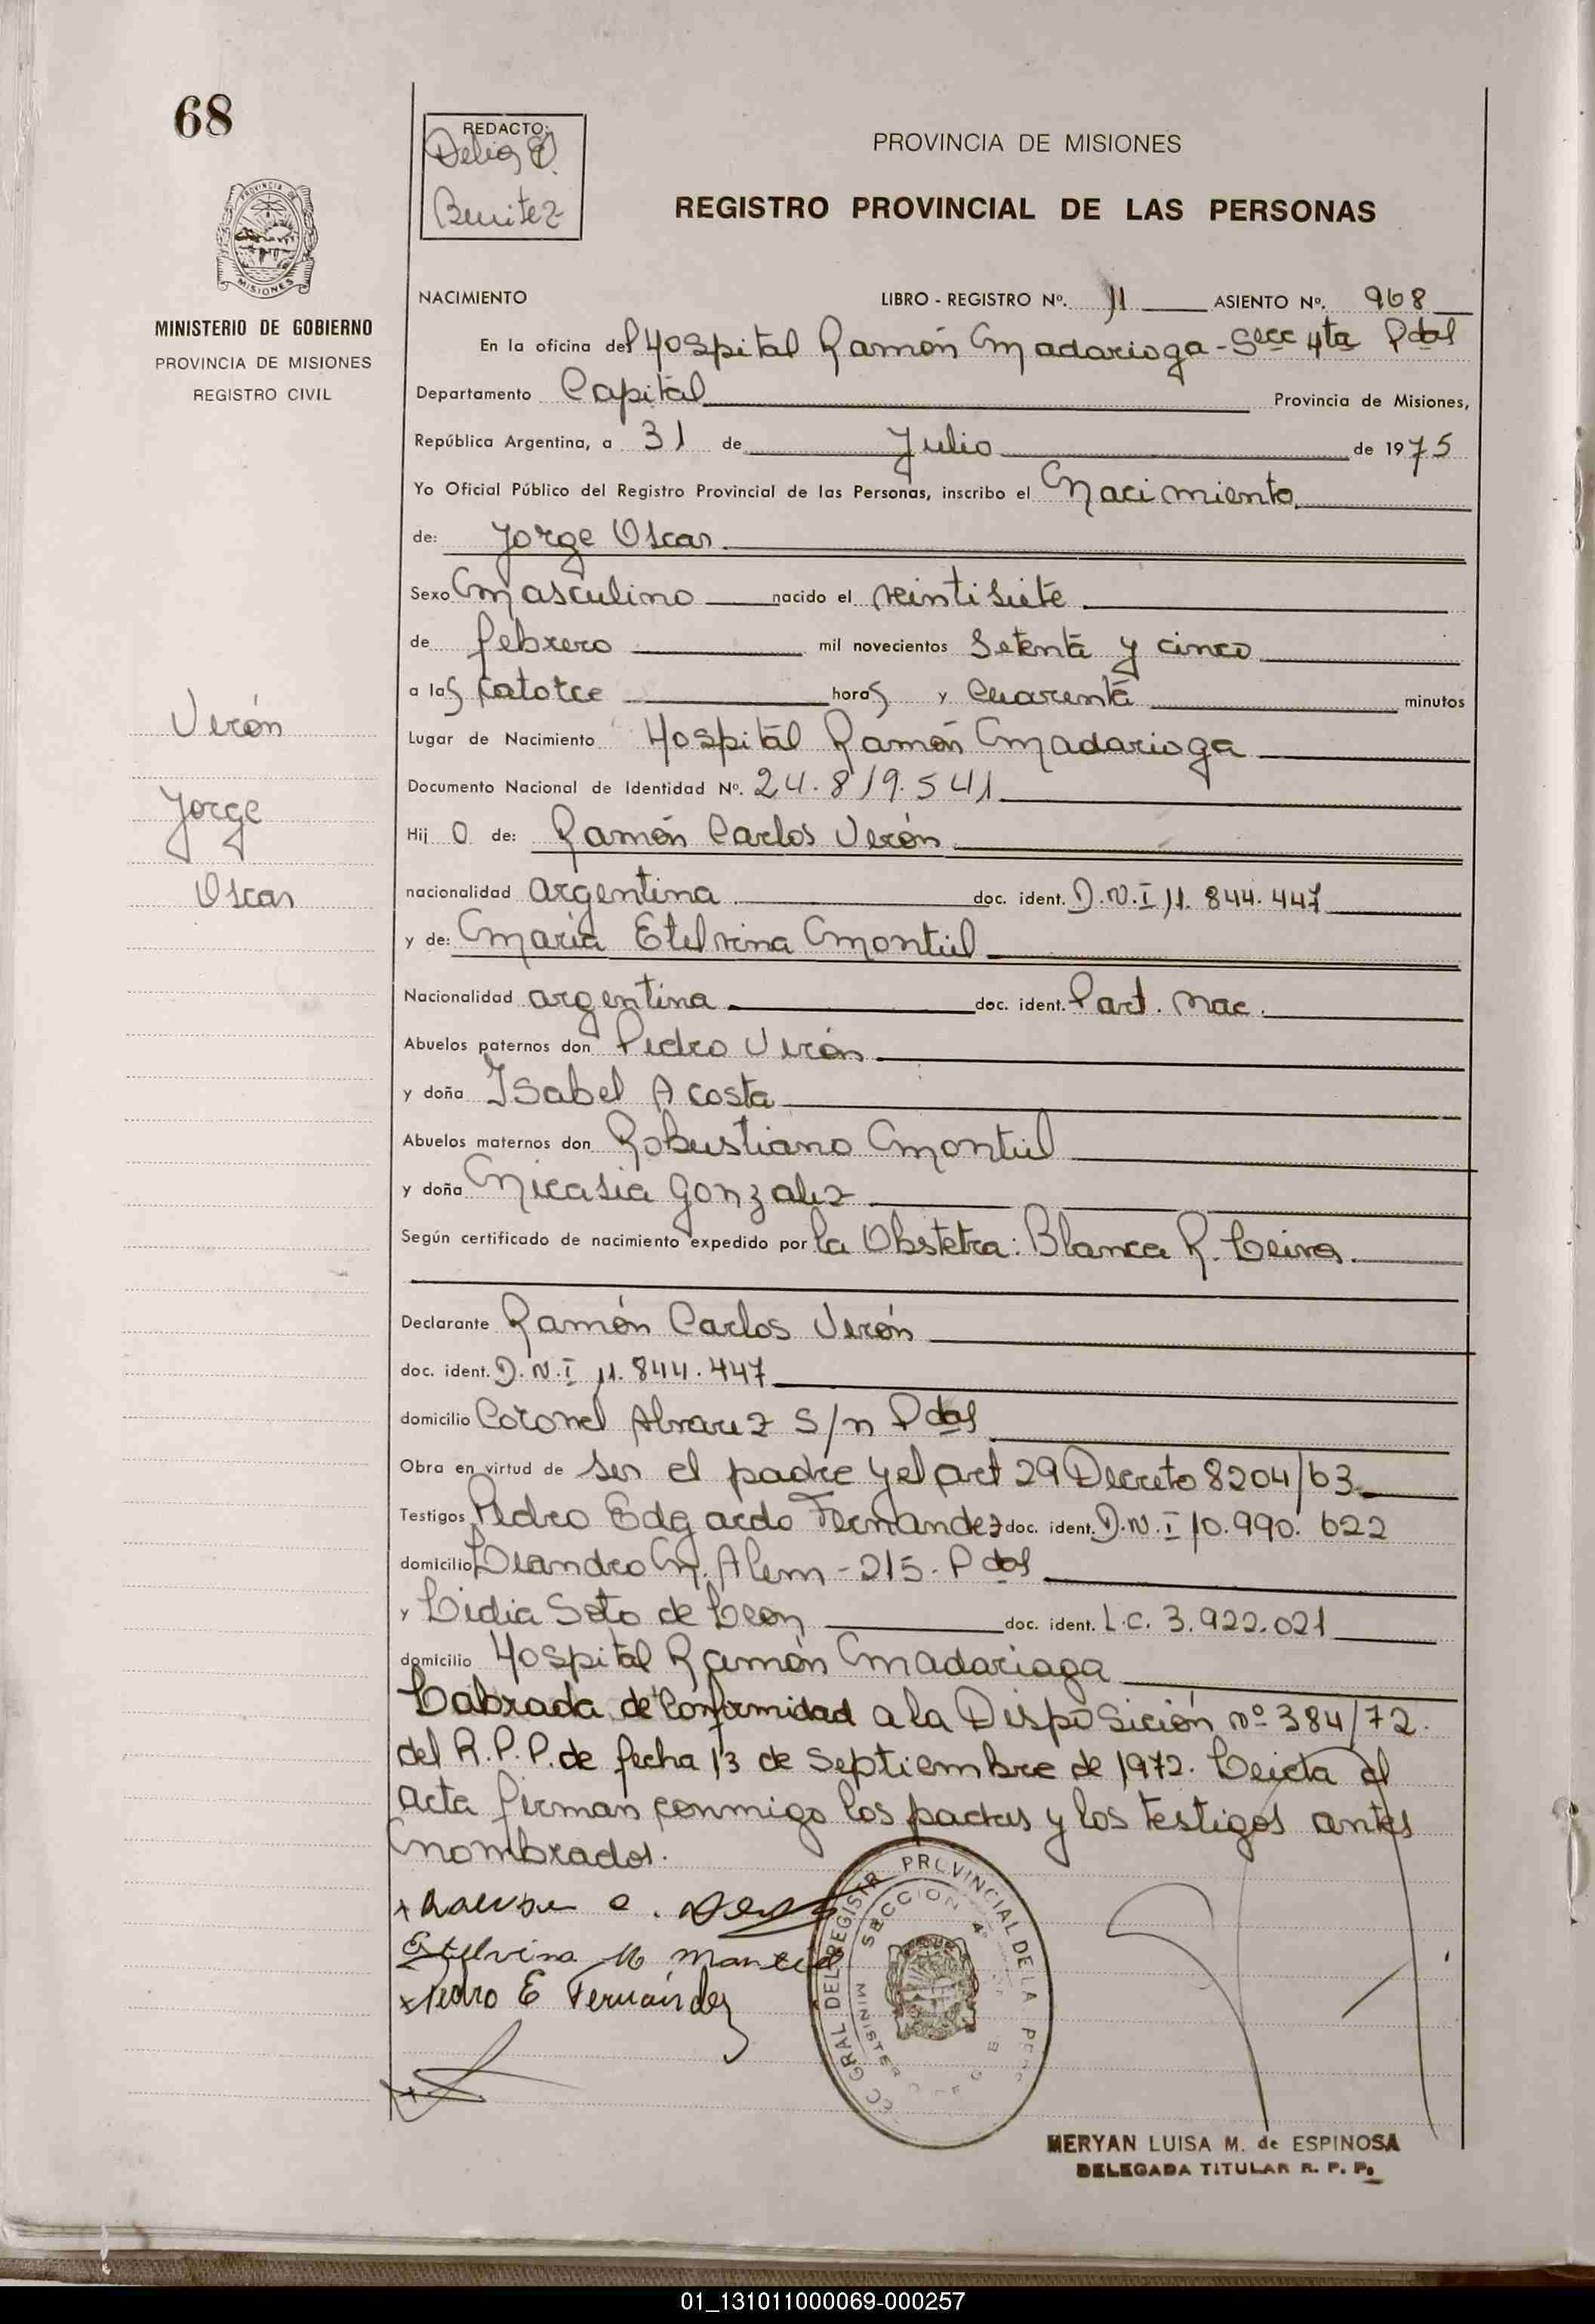 68
REDACTO:
Delia
Benitez
PROVINCIA DE MISIONES
REGISTRO PROVINCIAL DE LAS PERSONAS
PROVINCIA DE MISIONES
MINISTERIO DE GOBIERNO
PROVINCIA DE MISIONES
REGISTRO CIVIL
NACIMIENTO LIBRO - REGISTRO Nº. 11 ASIENTO Nº. 968
En la oficina del Hospital Ramón Madariaga - Secc 4ta Pdas
Departamento Capital Provincia de Misiones,
República Argentina, a 31 de Julio de 1975
Yo Oficial Público del Registro Provincial de las Personas, inscribo el Nacimiento
de: Jorge Oscar
Sexo Masculino nacido el veintisiete
de febrero mil novecientos setenta y cinco
a las catorce horas y cuarenta minutos
Lugar de Nacimiento Hospital Ramón Madariaga
Documento Nacional de Identidad Nº. 24.819.541
Hij o de: Ramón Carlos Verón
nacionalidad argentina doc. ident. D.N.I 11.844.447
y de: Maria Etelvina Montiel
Nacionalidad argentina doc. ident. Part. Nac.
Abuelos paternos don Pedro Verón
y doña Isabel Acosta
Abuelos maternos don Robustiano Montiel
y doña Nicasia Gonzalez
Según certificado de nacimiento expedido por la Obstetra: Blanca R. Leiva
Declarante Ramón Carlos Verón
doc. ident. D.N.I 11.844.447
domicilio Coronel Alvarez s/n Pdas
Obra en virtud de ser el padre y el art 29 Decreto 8204/63
Testigos Pedro Edgardo Fernandez doc. ident. D.N.I 10.990.622
domicilio Leandro N. Alem - 215 - Pdas
y Lidia Soto de Leon doc. ident. L.C. 3.922.021
domicilio Hospital Ramón Madariaga
Labrada de conformidad a la Disposición nº 384/72.
del R.P.P. de fecha 13 de Septiembre de 1972. Leida el
acta firman conmigo los padres y los testigos antes
nombrados.
Verón
Jorge
Oscar
Etelvina M Montiel
Pedro E Fernández
GRAL DEL REGISTR PROVINCIAL DE LA PERS
SECCION 4ª
MINISTER
MERYAN LUISA M. de ESPINOSA
DELEGADA TITULAR R. P. P.
01_131011000069-000257